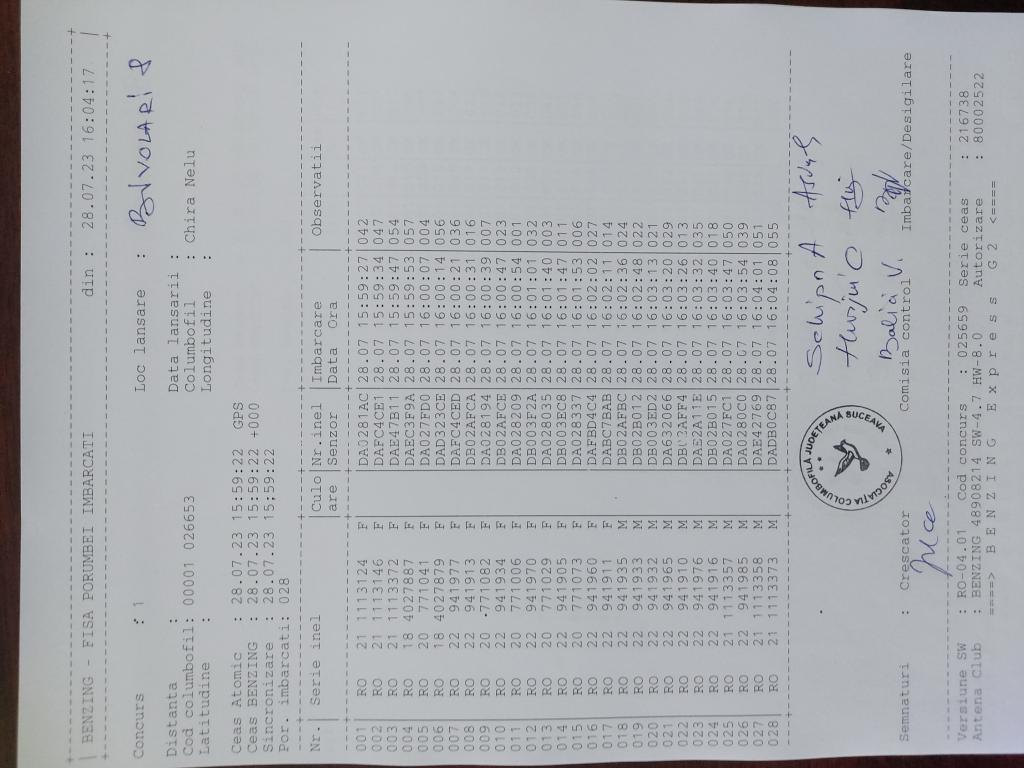 BENZING - FISA PORUMBEI IMBARCATI din : 28.07.23 16:04:17
Concurs : 1 Loc lansare :
Distanta : Data lansarii :
Cod columbofil: 00001 026653 Columbofil : Chira Nelu
Latitudine : Longitudine :
Ceas Atomic : 28.07.23 15:59:22 GPS
Ceas BENZING : 28.07.23 15:59:22 +000
Sincronizare : 28.07.23 15:59:22
Por. imbarcati: 028
Nr. | Serie inel |Culo|Nr.inel |Imbarcare | Observatii
|are |Senzor |Data Ora |
001 RO 21 1113124 F DA0281AC 28.07 15:59:27 042
002 RO 21 1113146 F DAFC4CE1 28.07 15:59:34 047
003 RO 21 1113372 F DAE47B11 28.07 15:59:47 054
004 RO 18 4027887 F DAEC3F9A 28.07 15:59:53 057
005 RO 20 771041 F DA027FD0 28.07 16:00:07 004
006 RO 18 4027879 F DAD323CE 28.07 16:00:14 056
007 RO 22 941977 F DAFC4CED 28.07 16:00:21 036
008 RO 22 941913 F DB02AFCA 28.07 16:00:31 016
009 RO 20 771082 F DA028194 28.07 16:00:39 007
010 RO 22 941934 F DB02AFCE 28.07 16:00:47 023
011 RO 20 771006 F DA028209 28.07 16:00:54 001
012 RO 22 941970 F DB003F2A 28.07 16:01:01 032
013 RO 20 771029 F DA028035 28.07 16:01:40 003
014 RO 22 941905 F DB003EC8 28.07 16:01:47 011
015 RO 20 771073 F DA028337 28.07 16:01:53 006
016 RO 22 941960 F DAFBD4C4 28.07 16:02:02 027
017 RO 22 941911 F DABC7BAB 28.07 16:02:11 014
018 RO 22 941935 M DB02AFBC 28.07 16:02:36 024
019 RO 22 941933 M DB02B012 28.07 16:02:48 022
020 RO 22 941932 M DB003ED2 28.07 16:03:13 021
021 RO 22 941965 M DA632066 28.07 16:03:20 029
022 RO 22 941910 M DB02AFF4 28.07 16:03:26 013
023 RO 22 941976 M DAE2A11E 28.07 16:03:32 035
024 RO 22 941916 M DB02B015 28.07 16:03:40 018
025 RO 21 1113357 M DA027FC1 28.07 16:03:47 050
026 RO 22 941985 M DA0280C0 28.07 16:03:54 039
027 RO 21 1113358 M DAE42769 28.07 16:04:01 051
028 RO 21 1113373 M DADB0C87 28.07 16:04:08 055
ASOCIAŢIA COLUMBOFILĂ JUDEŢEANĂ SUCEAVA
Schipn A
Semnaturi : Crescator Comisia control Imbarcare/Desigilare
Versiune SW : RO-04.01 Cod concurs : 025659 Serie ceas : 216738
Antena Club : BENZING 48908214 SW-4.7 HW-8.0 Autorizare : 80002522
====> B E N Z I N G E x p r e s s G 2 <====